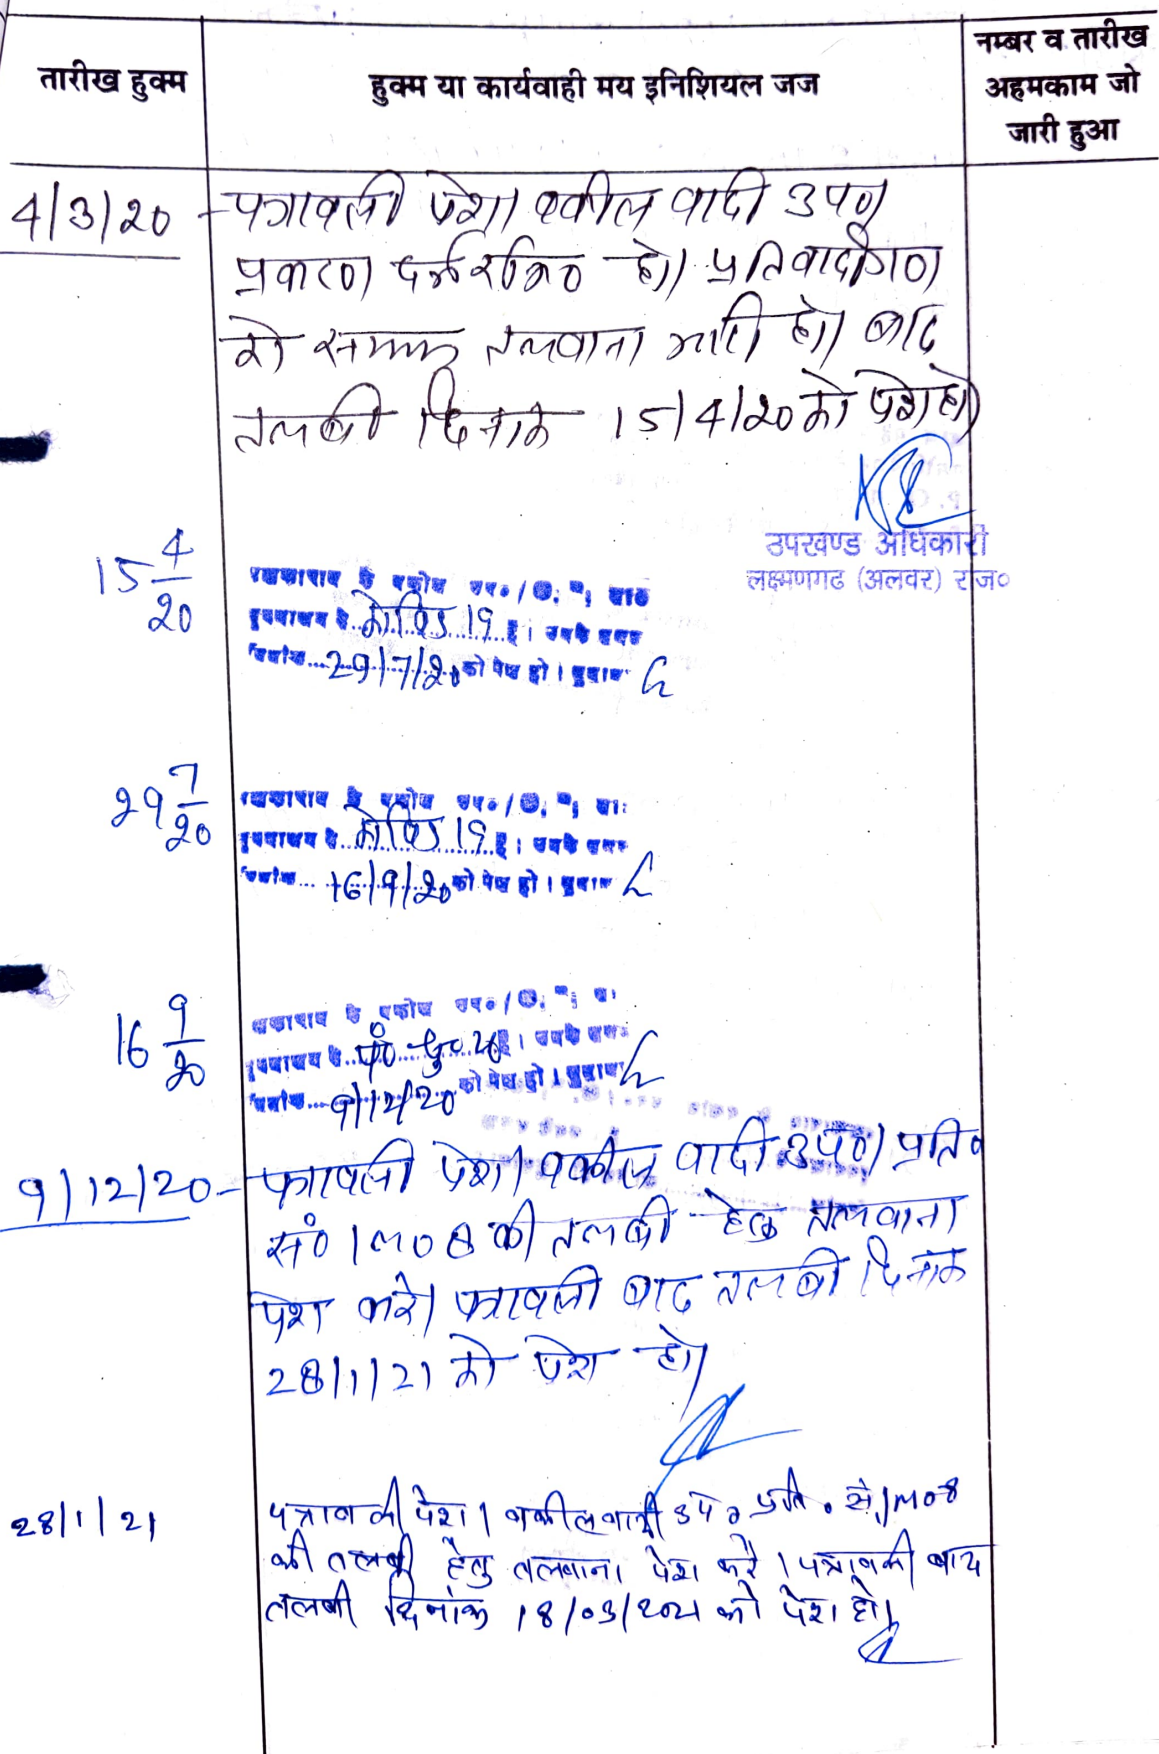 तारीख हुक्म
हुक्म या कार्यवाही मय इनिशियल जज
नम्बर व तारीख
अहमकाम जो
जारी हुआ
4/3/20
पत्रावली पेश। वकील वादी उप०।
प्रकरण दर्ज रजि० हो। प्रतिवादीगण
को सम्मन तलवाना जारी हो। बाद
तलबी दिनांक 15/4/20 को पेश हो।
उपखण्ड अधिकारी
लक्ष्मणगढ (अलवर) राज०
15 4/20
के वकील उप०/
कोविड 19 है। उनके
29/7/20 को पेश हो।
29 7/20
के वकील उप०/
कोविड 19 है। उनके
16/9/20 को पेश हो।
16 9/20
के वकील उप०/
है। उनके
9/12/20 को पेश हो।
9/12/20
पत्रावली पेश। वकील वादी उप०। प्रति०
सं० 1 ल० 8 की तलबी हेतु तलवाना
पेश करे। पत्रावली बाद तलबी दिनांक
28/1/21 को पेश हो।
28/1/21
पत्रावली पेश। वकील वादी उप० प्रति० सं. 1 ल० 8
की तलबी हेतु तलवाना पेश करे। पत्रावली बाद
तलबी दिनांक 18/03/2021 को पेश हो।